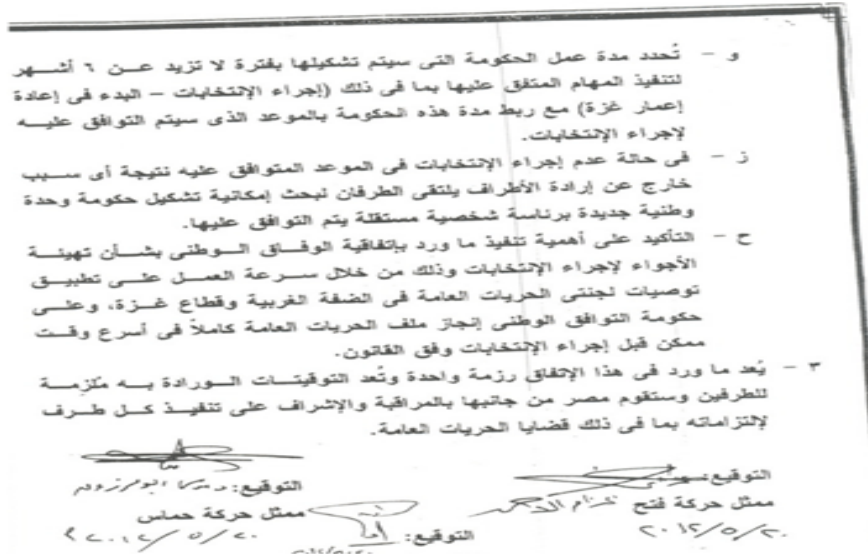 و – تُحدد مدة عمل الحكومة التى سيتم تشكيلها بفترة لا تزيد عـن ٦ أشـهر
لتنفيذ المهام المتفق عليها بما فى ذلك (إجراء الإنتخابات – البدء فى إعادة
إعمار غزة) مع ربط مدة هذه الحكومة بالموعد الذى سيتم التوافق عليـه
لإجراء الإنتخابات.
ز – فى حالة عدم إجراء الإنتخابات فى الموعد المتوافق عليه نتيجة أى سـبب
خارج عن إرادة الأطراف يلتقى الطرفان لبحث إمكانية تشكيل حكومة وحدة
وطنية جديدة برئاسة شخصية مستقلة يتم التوافق عليها.
ح – التأكيد على أهمية تنفيذ ما ورد بإتفاقية الوفـاق الـوطنى بشـأن تهيئـة
الأجواء لإجراء الإنتخابات وذلك من خلال سـرعة العمـل علـى تطبيـق
توصيات لجنتى الحريات العامة فى الضفة الغربية وقطاع غـزة، وعلـى
حكومة التوافق الوطنى إنجاز ملف الحريات العامة كاملاً فى أسرع وقـت
ممكن قبل إجراء الإنتخابات وفق القانون.
٣ – يُعد ما ورد فى هذا الإتفاق رزمة واحدة وتُعد التوقيتـات الـورادة بـه مُلزمـة
للطرفين وستقوم مصر من جانبها بالمراقبة والإشراف على تنفيـذ كـل طـرف
لإلتزاماته بما فى ذلك قضايا الحريات العامة.
التوقيع:
ممثل حركة فتح عزام الاحمد
٢٠١٢/٥/٢٠
التوقيع: د. موسى ابومرزوق
ممثل حركة حماس
٢٠١٢/٥/٢٠
التوقيع: